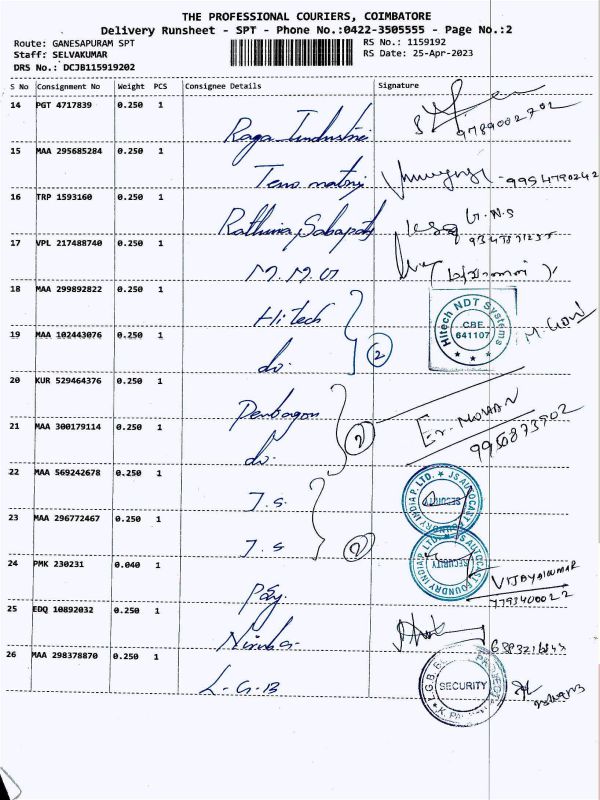 THE PROFESSIONAL COURIERS, COIMBATORE
Delivery Runsheet - SPT - Phone No.:0422-3505555 - Page No.:2
Route: GANESAPURAM SPT
RS No.: 1159192
Staff: SELVAKUMAR
RS Date: 25-Apr-2023
DRS No.: DCJB115919202
S No Consignment No Weight PCS Consignee Details Signature
14 PGT 4717839 0.250 1
Raga Industries
9789002702
15 MAA 295685284 0.250 1
9954790242
16 TRP 1593160 0.250 1
Rathina Sabapaty
G.N.S
17 VPL 217488740 0.250 1
M.M.
18 MAA 299892822 0.250 1
Hi tech
Hitech NDT Systems
CBE
641107
19 MAA 102443076 0.250 1
do.
2
20 KUR 529464376 0.250 1
Er. MOHAN
21 MAA 300179114 0.250 1
do.
2
22 MAA 569242678 0.250 1
J.S.
JS AUTOCAST FOUNDRY INDIA P. LTD.
SECURITY
23 MAA 296772467 0.250 1
J.S
2
JS AUTOCAST FOUNDRY INDIA P. LTD.
SECURITY
24 PMK 230231 0.040 1
VIJAYAKUMAR
25 EDQ 10892032 0.250 1
26 MAA 298378870 0.250 1
L.G.B
SECURITY